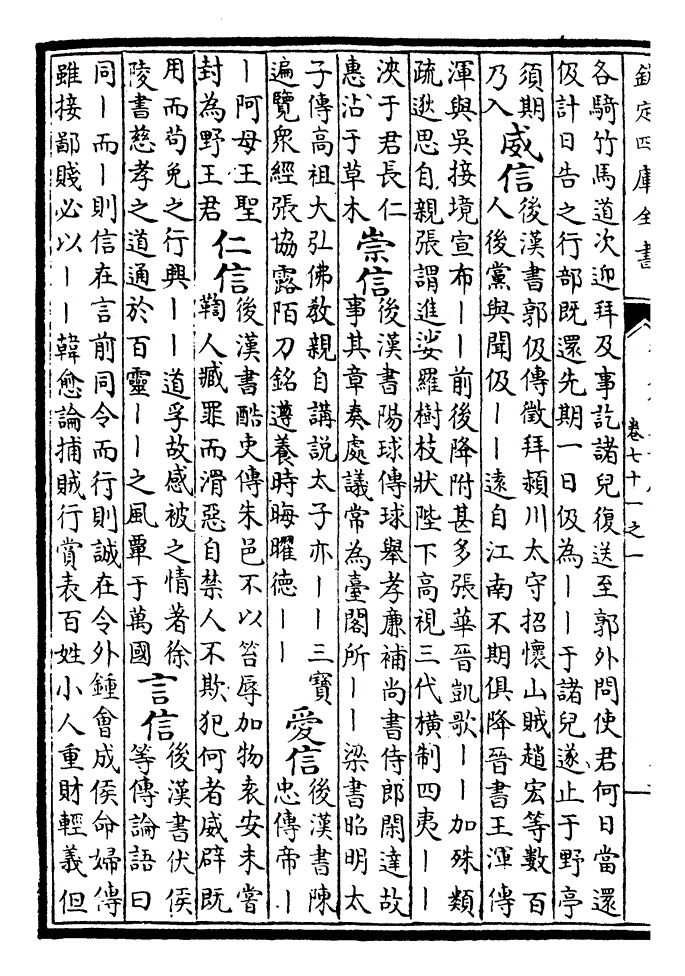 欽定四庫全書
卷七十一之一
各騎竹馬道次迎拜及事訖諸兒復送至郭外問使君何日當還
伋計日告之行部既還先期一日伋為丨丨于諸兒遂止于野亭
須期
乃入
威信
後漢書郭伋傳徵拜潁川太守招懷山賊趙宏等數百
人後黨與聞伋丨丨遠自江南不期俱降晉書王渾傳
渾與吳接境宣布丨丨前後降附甚多張華晉凱歌丨丨加殊類
疏逖思自親張謂進娑羅樹枝狀陛下高視三代橫制四夷丨丨
泱于君長仁
惠沾于草木
崇信
後漢書陽球傳球舉孝廉補尚書侍郎閑達故
事其章奏處議常為臺閣所丨丨梁書昭明太
子傳高祖大弘佛教親自講説太子亦丨丨三寶
遍覽衆經張協露陌刀銘遵養時晦曜德丨丨
愛信
後漢書陳
忠傳帝丨
丨阿母王聖
封為野王君
仁信
後漢書酷吏傳朱邑不以笞辱加物袁安未嘗
鞫人臧罪而滑惡自禁人不欺犯何者威辟既
用而苟免之行興丨丨道孚故感被之情著徐
陵書慈孝之道通於百靈丨丨之風覃于萬國
言信
後漢書伏侯
等傳論語曰
同丨而丨則信在言前同令而行則誠在令外鍾會成侯命婦傳
雖接鄙賤必以丨丨韓愈論捕賊行賞表百姓小人重財輕義但